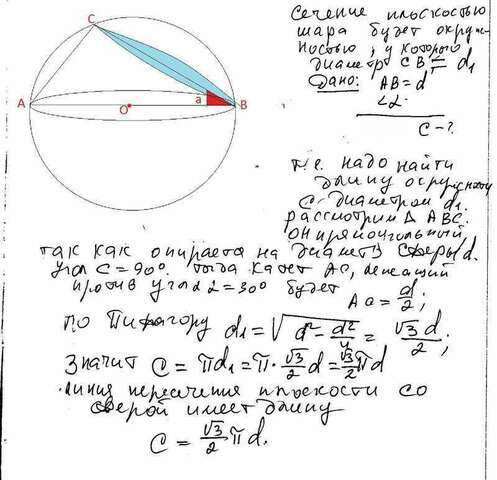 C
A
O
a
B
Сечение плоскостью
шара будет окруж-
ностью, у которого
диаметр CB = d₁
Дано: AB = d
∠α
C - ?
т.е. надо найти
длину окружности
с диаметром d₁.
рассмотрим Δ ABC.
он прямоугольный,
так как опирается на диаметр сферы d.
Угол C = 90°. тогда катет AC, лежащий
против угла α = 30° будет
AC = d/2;
по Пифагору d₁ = √(d² - d²/4) = √3 d/2;
Значит C = πd₁ = π · √3/2 d = √3/2 πd
линия пересечения плоскости со
сферой имеет длину
C = √3/2 πd.